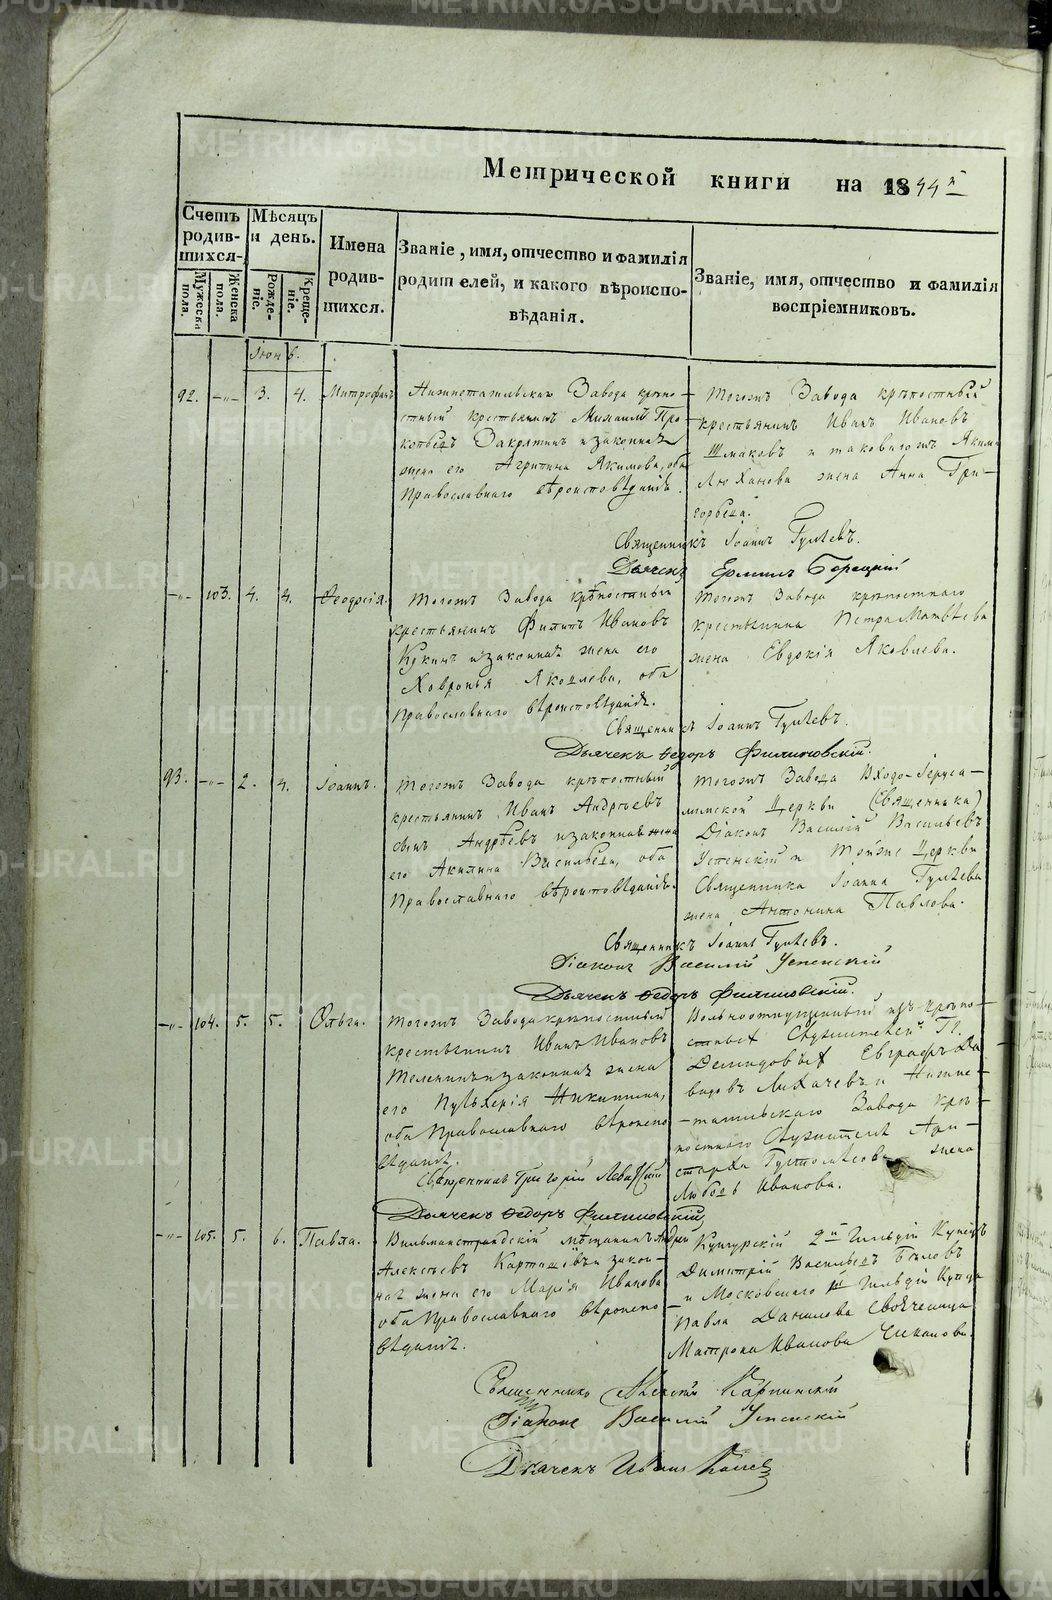 Метрической книги на 1844й
Счетъ родив-шихся.
Мѣсяцъ и день.
Имена родив-шихся.
Званіе, имя, отчество и фамилія родителей, и какого вѣроиспо-вѣданія.
Званіе, имя, отчество и фамилія воспріемниковъ.
Мужеска пола.
Женска пола.
Рожде-ніе.
Креще-ніе.
Іюнь.
92. -„- 3. 4. Митрофанъ
Нижнетагильскаго Завода крѣпо-
стный крестьянинъ Михаилъ Про-
копьевъ Закрятинъ и законная
жена его Агрипина Якимова, оба
Православнаго вѣроисповѣданія.
Тогожъ Завода крѣпостный
крестьянинъ Иванъ Ивановъ
Шмаковъ и таковагожъ Якима
Люханова жена Анна Гри-
горьева.
Священникъ Іоаннъ Гуляевъ.
Дьячекъ Ермилъ Борецкій
-„- 103. 4. 4. Ѳеодосія.
Тогожъ Завода крѣпостный
крестьянинъ Филипъ Ивановъ
Кукинъ и законная жена его
Ховронья Яковлева, оба
Православнаго вѣроисповѣданія.
Тогожъ Завода крѣпостнаго
крестьянина Петра Матвѣева
жена Евдокія Яковлева.
Священникъ Іоаннъ Гуляевъ.
Дьячекъ Ѳедоръ Филиповскій.
93. -„- 2. 4. Іоаннъ.
Тогожъ Завода крѣпостный
крестьянинъ Иванъ Андреевъ
сынъ Андрѣевъ и законная жена
его Акилина Васильева, оба
Православнаго вѣроисповѣданія.
Тогожъ Завода Входо-Іеруса-
лимской Церкви (Священника)
Діаконъ Василій Васильевъ
Успенскій и Тойже Церкви
Священника Іоанна Гуляева
жена Антонина Павлова.
Священникъ Іоаннъ Гуляевъ.
Діаконъ Василій Успенскій
Дьячекъ Ѳедоръ Филиповскій.
-„- 104. 5. 5. Ольга.
Тогожъ Завода крѣпостный
крестьянинъ Иванъ Ивановъ
Теленинъ и законная жена
его Пульхерія Никитина,
оба Православнаго вѣроиспо
вѣданія.
Вольноотпущенный изъ крѣпо-
стныхъ Служителей Г.
Демидовыхъ Евграфъ Да-
видовъ Лихачевъ и Нижне-
тагильскаго Завода крѣ-
постнаго Служителя Ари-
старха жена
Любовь Иванова.
Священникъ Григорій Левицкій
Дьячекъ Ѳедоръ Филиповскій,
-„- 105. 5. 6. Павла.
Вильманстрандскій мѣщанинъ Андрей
Алексѣевъ Карташевъ и закон-
ная жена его Марія Иванова
оба Православнаго вѣроиспо
вѣданія.
Кунгурскій 2й Гильдіи Купецъ
Димитрій Васильевъ Бѣловъ
и Московскаго Гильдіи Купца
Павла Данилова Своячелица
Матрона Иванова Чиканова.
Священникъ Алексій Карпинскій
Діаконъ Василій Успенскій
Дьячекъ Иванъ
METRIKI.GASO-URAL.RU